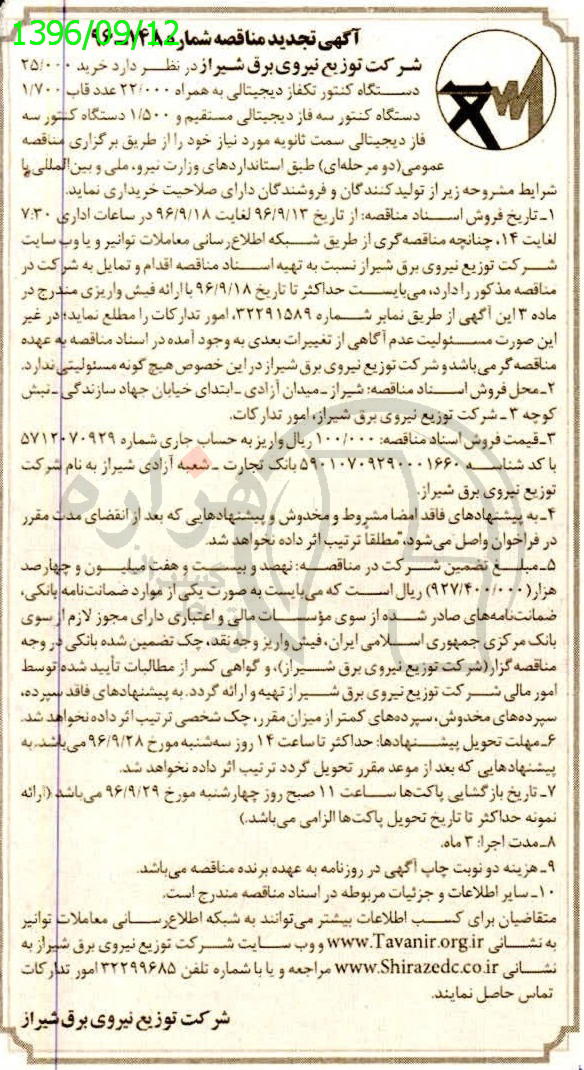 1396/09/12
آگهی تجدید مناقصه شماره ۷۴۸ـ۹۶
شرکت توزیع نیروی برق شیراز در نظر دارد خرید ۲۵/۰۰۰
دستگاه کنتور تکفاز دیجیتالی به همراه ۲۲/۰۰۰ عدد قاب ۱/۷۰۰
دستگاه کنتور سه فاز دیجیتالی مستقیم و ۱/۵۰۰ دستگاه کنتور سه
فاز دیجیتالی سمت ثانویه مورد نیاز خود را از طریق برگزاری مناقصه
عمومی(دو مرحله‌ای) طبق استانداردهای وزارت نیرو، ملی و بین‌المللی با
شرایط مشروحه زیر از تولیدکنندگان و فروشندگان دارای صلاحیت خریداری نماید.
۱ـ تاریخ فروش اسناد مناقصه: از تاریخ ۹۶/۹/۱۳ لغایت ۹۶/۹/۱۸ در ساعات اداری ۷:۳۰
لغایت ۱۴، چنانچه مناقصه‌گری از طریق شبکه اطلاع‌رسانی معاملات توانیر و یا وب سایت
شرکت توزیع نیروی برق شیراز نسبت به تهیه اسناد مناقصه اقدام و تمایل به شرکت در
مناقصه مذکور را دارد، می‌بایست حداکثر تا تاریخ ۹۶/۹/۱۸ با ارائه فیش واریزی مندرج در
ماده ۳ این آگهی از طریق نمابر شماره ۳۲۲۹۱۵۸۹، امور تدارکات را مطلع نماید؛ در غیر
این صورت مسئولیت عدم آگاهی از تغییرات بعدی به وجود آمده در اسناد مناقصه به عهده
مناقصه‌گر می‌باشد و شرکت توزیع نیروی برق شیراز در این خصوص هیچ گونه مسئولیتی ندارد.
۲ـ محل فروش اسناد مناقصه: شیراز ـ میدان آزادی ـ ابتدای خیابان جهاد سازندگی ـ نبش
کوچه ۳ ـ شرکت توزیع نیروی برق شیراز، امور تدارکات.
۳ـ قیمت فروش اسناد مناقصه: ۱۰۰/۰۰۰ ریال واریز به حساب جاری شماره ۵۷۱۲۰۷۰۹۲۹
با کد شناسه ۵۹۰۱۰۷۰۹۲۹۰۰۰۱۶۶۰ بانک تجارت ـ شعبه آزادی شیراز به نام شرکت
توزیع نیروی برق شیراز.
۴ـ به پیشنهادهای فاقد امضا مشروط و مخدوش و پیشنهادهایی که بعد از انقضای مدت مقرر
در فراخوان واصل می‌شود، مطلقاً ترتیب اثر داده نخواهد شد.
۵ـ مبلغ تضمین شرکت در مناقصه: نهصد و بیست و هفت میلیون و چهارصد
هزار (۹۲۷/۴۰۰/۰۰۰) ریال است که می‌بایست به صورت یکی از موارد ضمانت‌نامه بانکی،
ضمانت‌نامه‌های صادر شده از سوی مؤسسات مالی و اعتباری دارای مجوز لازم از سوی
بانک مرکزی جمهوری اسلامی ایران، فیش واریز وجه نقد، چک تضمین شده بانکی در وجه
مناقصه گزار (شرکت توزیع نیروی برق شیراز)، و گواهی کسر از مطالبات تأیید شده توسط
امور مالی شرکت توزیع نیروی برق شیراز تهیه و ارائه گردد. به پیشنهادهای فاقد سپرده،
سپرده‌های مخدوش، سپرده‌های کمتر از میزان مقرر، چک شخصی ترتیب اثر داده نخواهد شد.
۶ـ مهلت تحویل پیشنهادها: حداکثر تا ساعت ۱۴ روز سه‌شنبه مورخ ۹۶/۹/۲۸ می‌باشد. به
پیشنهادهایی که بعد از موعد مقرر تحویل گردد ترتیب اثر داده نخواهد شد.
۷ـ تاریخ بازگشایی پاکت‌ها ساعت ۱۱ صبح روز چهارشنبه مورخ ۹۶/۹/۲۹ می‌باشد. (ارائه
نمونه حداکثر تا تاریخ تحویل پاکت‌ها الزامی می‌باشد.)
۸ـ مدت اجرا: ۳ ماه.
۹ـ هزینه دو نوبت چاپ آگهی در روزنامه به عهده برنده مناقصه می‌باشد.
۱۰ـ سایر اطلاعات و جزئیات مربوطه در اسناد مناقصه مندرج است.
متقاضیان برای کسب اطلاعات بیشتر می‌توانند به شبکه اطلاع‌رسانی معاملات توانیر
به نشانی www.Tavanir.org.ir و وب سایت شرکت توزیع نیروی برق شیراز به
نشانی www.Shirazedc.co.ir مراجعه و یا با شماره تلفن ۳۲۲۹۹۶۸۵ امور تدارکات
تماس حاصل نمایند.
شرکت توزیع نیروی برق شیراز
هزاره